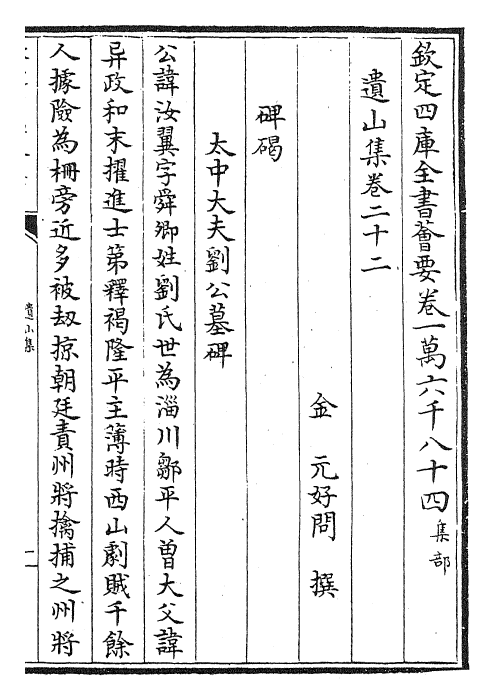 欽定四庫全書薈要卷一萬六千八十四集部
遺山集卷二十二
金 元好問 撰
碑碣
太中大夫劉公墓碑
公諱汝翼字舜卿姓劉氏世為淄川鄒平人曽大父諱
异政和末擢進士第釋褐隆平主簿時西山劇賊千餘
人據險為柵旁近多被刼掠朝廷責州將擒捕之州將
遺山集